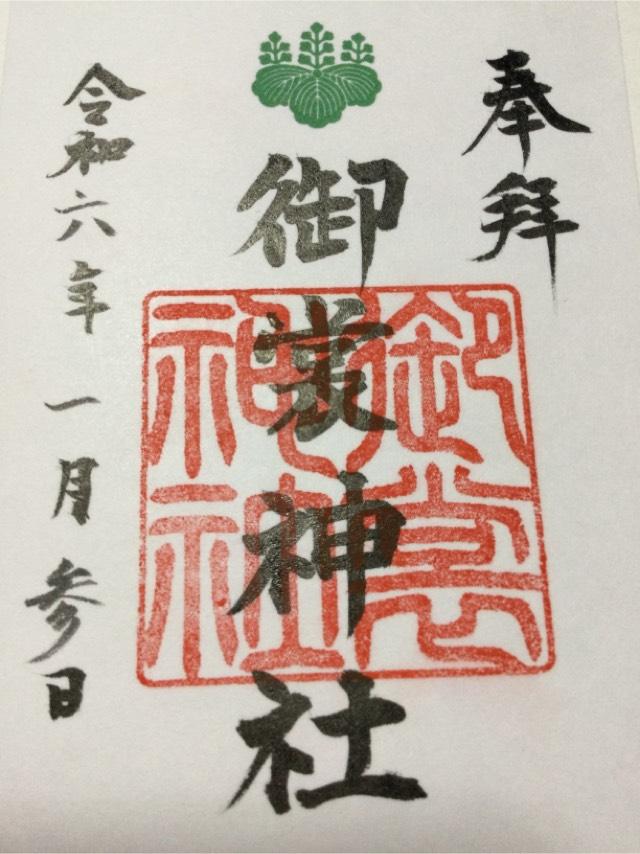 奉拝
御裳神社
令和六年 一月参日
御裳
神社